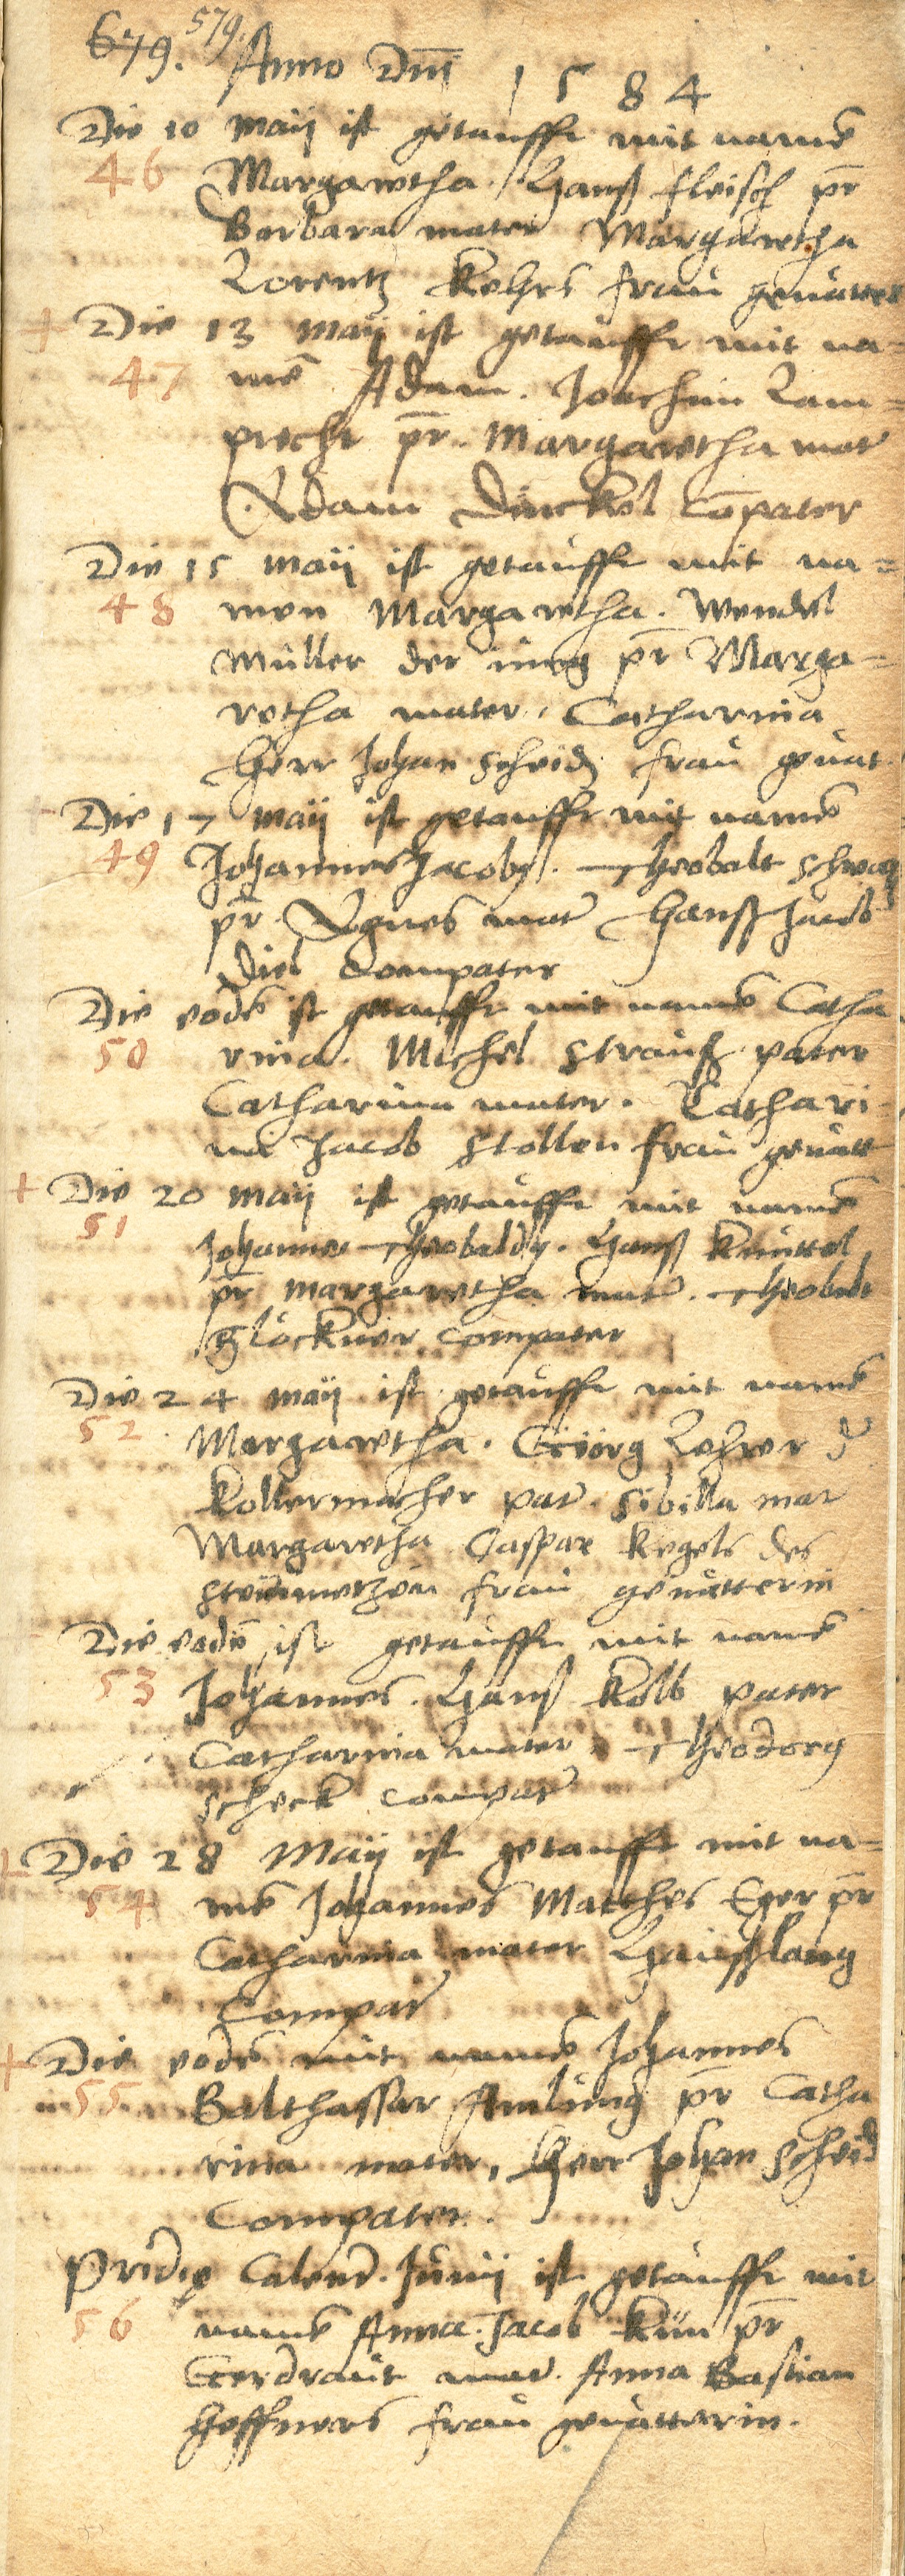 679. 579.
Anno Dni 1584
Die 10 maij ist getaufft mit name
46 Margaretha. Hanß fleisch pr
Barbara mater Margaretha
Lorentz Kehrs frau geuatter
+ Die 13 maij ist getaufft mit na=
47 me Adam. Joachim Lam=
precht pr. Margaretha mat
Adam Dinckel copater
Die 15 maij ist getaufft mit na=
48 men Margaretha. Wendel
Müller der jung pr Marga=
retha mater, Catharina
Herr Johan Scheid frau geuat.
+ Die 17 maij ist getaufft mit name
49 Johannes Jacoby. Theobalt Schwag
pr Agnes mat Hanß Jacob
Diel Compater
Die eode ist getaufft mit name Catha
50 rina. Michel Strauß pater
Catharina mater. Cathari=
na Jacob Stollen frau geuatt
+ Die 20 maij ist getaufft mit name
51
Johannes Theobaldy. Hanß Knüttel
pr margaretha mat. Theobalt
Glöckner compater
Die 24 maij ist getaufft mit name
52 Margaretha. Geörg Lehrer d
Kollermacher pat. Sibilla mat
Margaretha Caspar Kegels des
steinmetzen frau geuatterin
Die eode ist getaufft mit name
53 Johannes. Hanß Kolb pater
Catharina mater. Theodorg
Scheck compat
+ Die 28 Maij ist getaufft mit na=
54 me Johannes Matthes Eger pr
Catharina mater Hanß lang
Compat
+ Die eode mit name Johannes
55 Balthassar Amlung pr Catha
rina mater, Herr Johan Scheid
Compater.
Pridie Calend. Junij ist getaufft mit
56 name Anna. Jacob Kün pr
Gerdraut mat. Anna Bastian
Heffners frau geuatterin.